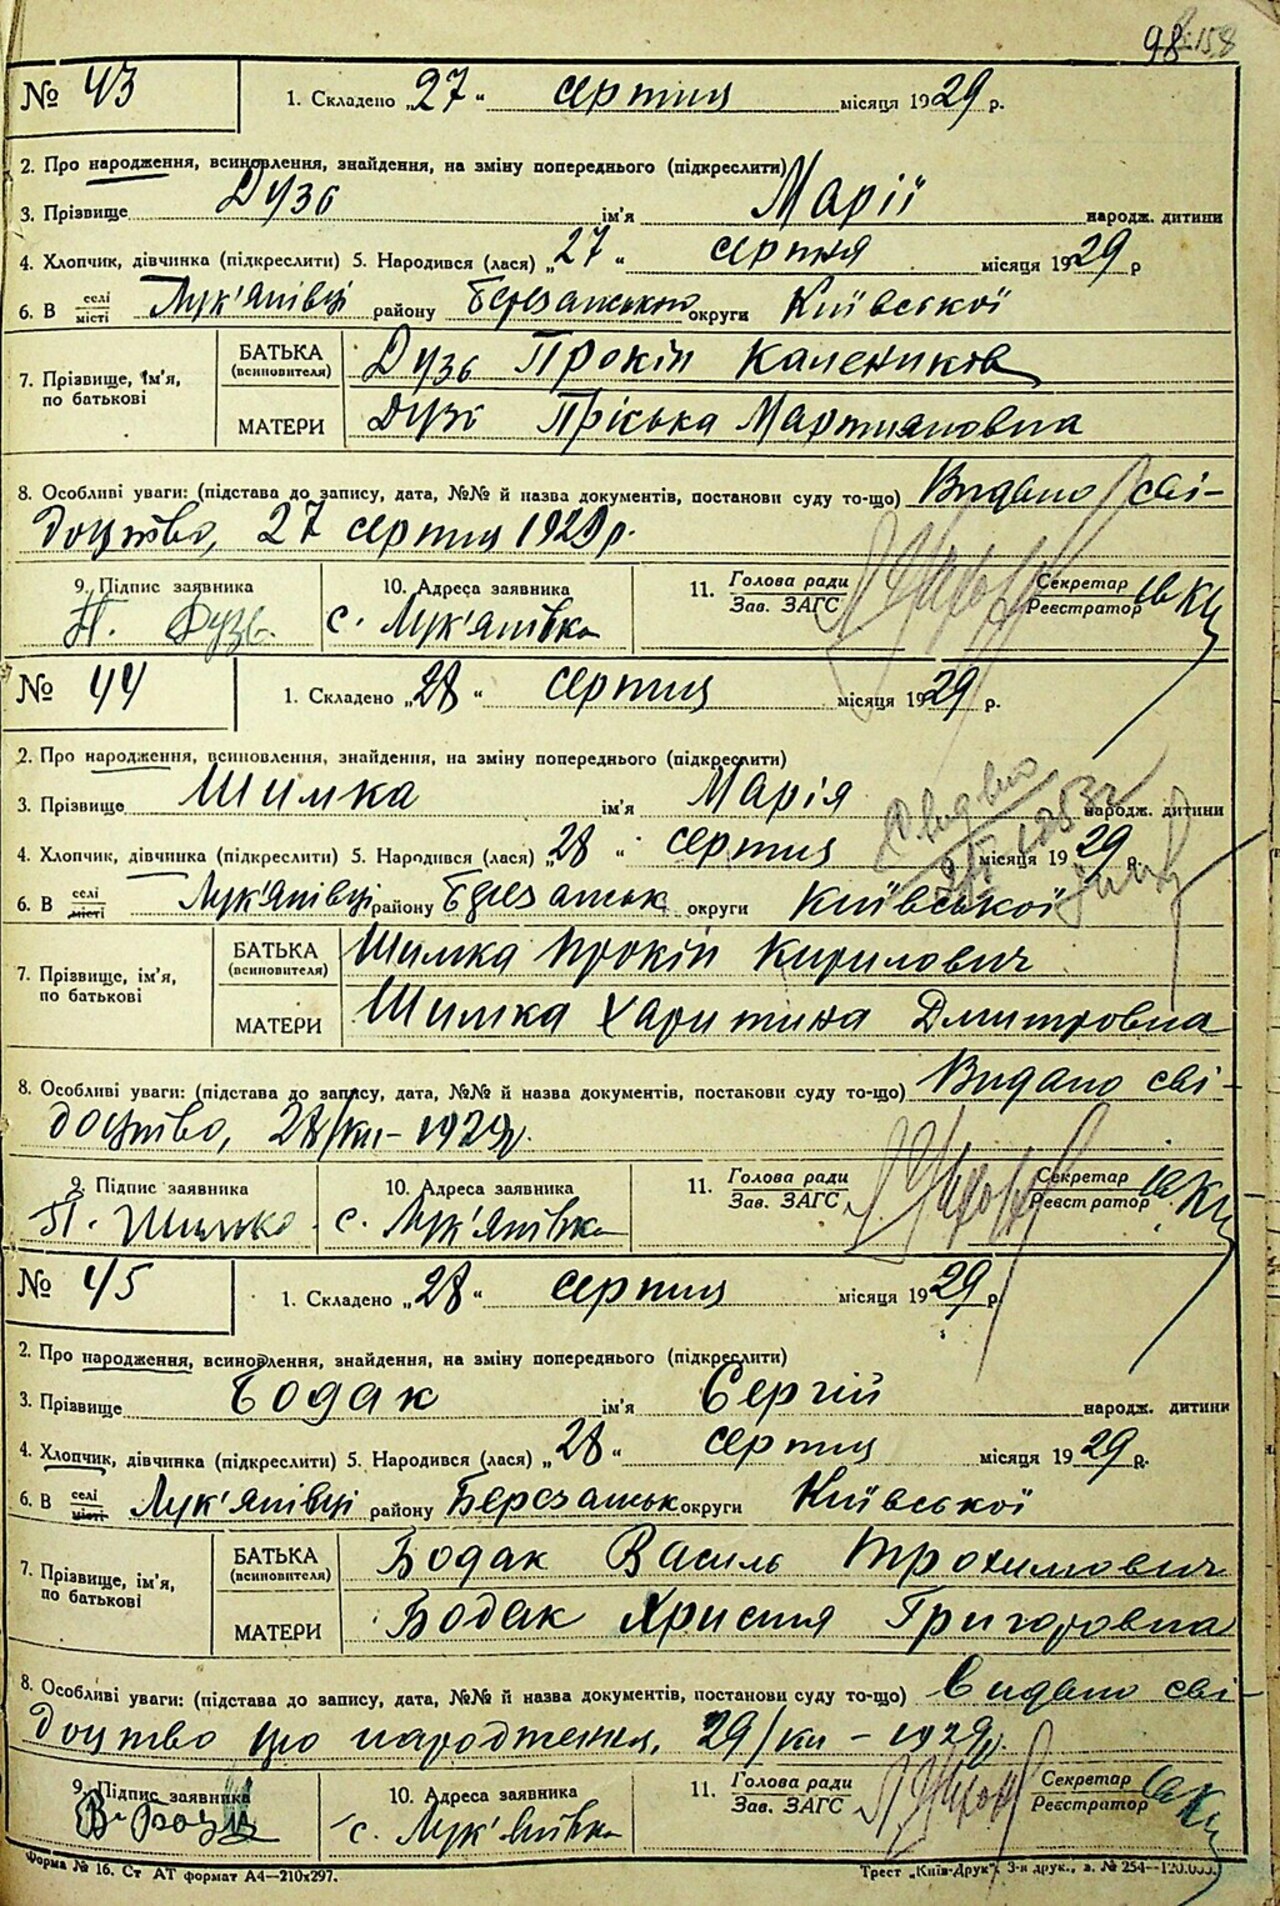 98 158
№ 43
1. Складено „27“ серпня місяця 1929 р.
2. Про народження, всиновлення, знайдення, на зміну попереднього (підкреслити)
3. Прізвище Дузь ім'я Марії народж. дитини
4. Хлопчик, дівчинка (підкреслити) 5. Народився (лася) „27“ серпня місяця 1929 р
6. В селі місті Лук'янівці району Березанського округи Київської
7. Прізвище, ім'я, по батькові БАТЬКА (всиновителя) Дузь Прокіп Калеников
МАТЕРИ Дузь Пріська Мартияновна
8. Особливі уваги: (підстава до запису, дата, №№ й назва документів, постанови суду то-що) Видано сві-
доцтво, 27 серпня 1929 р.
9. Підпис заявника 10. Адреса заявника 11. Голова ради Зав. ЗАГС Секретар Реєстратор
П. Дузь. с. Лук'янівка
№ 44
1. Складено „28“ серпня місяця 1929 р.
2. Про народження, всиновлення, знайдення, на зміну попереднього (підкреслити)
3. Прізвище Шимка ім'я Марія народж. дитини
4. Хлопчик, дівчинка (підкреслити) 5. Народився (лася) „28“ серпня місяця 1929 р.
6. В селі місті Лук'янівці району Березанськ округи Київської
7. Прізвище, ім'я, по батькові БАТЬКА (всиновителя) Шимка Прокіп Кирилович
МАТЕРИ Шимка Харитина Дмитровна
8. Особливі уваги: (підстава до запису, дата, №№ й назва документів, постакови суду то-що) Видано сві-
доцтво, 28/VIII-1929р.
9. Підпис заявника 10. Адреса заявника 11. Голова ради Зав. ЗАГС Секретар Реєстратор
П. Шимко. с. Лук'янівка
№ 45
1. Складено „28“ серпня місяця 1929 р.
2. Про народження, всиновлення, знайдення, на зміну попереднього (підкреслити)
3. Прізвище Бодак ім'я Сергій народж. дитини
4. Хлопчик, дівчинка (підкреслити) 5. Народився (лася) „28“ серпня місяця 1929 р.
6. В селі місті Лук'янівці району Березанськ округи Київської
7. Прізвище, ім'я, по батькові БАТЬКА (всиновителя) Бодак Василь Трохимович
МАТЕРИ Бодак Христя Григоровна
8. Особливі уваги: (підстава до запису, дата, №№ й назва документів, постанови суду то-що) Видано сві-
доцтво про народження, 29/VIII - 1929р.
9. Підпис заявника 10. Адреса заявника 11. Голова ради Зав. ЗАГС Секретар Реєстратор
с. Лук'янівка
Форма № 16. Ст АТ формат А4—210х297. Трест „Київ-Друк“. 3-я друк., з. № 254—120.000.